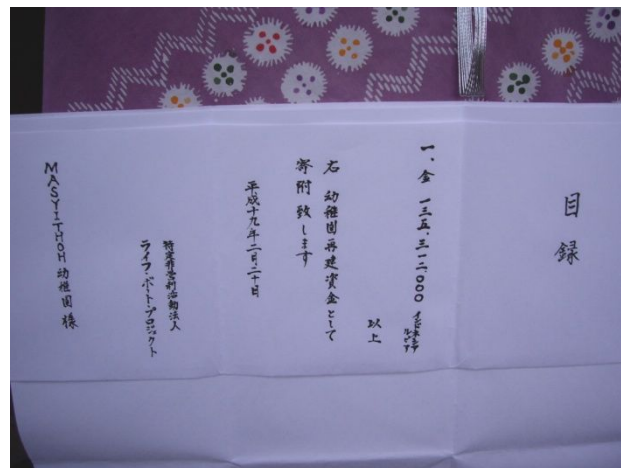 目録
一、金 一三五.三一二.000 インドネシアルピア
以上
右 幼稚園再建資金として
寄附致します
平成十九年二月二十日
特定非営利活動法人
ライフ・ボート・プロジェクト
MASYITHOH 幼稚園 様